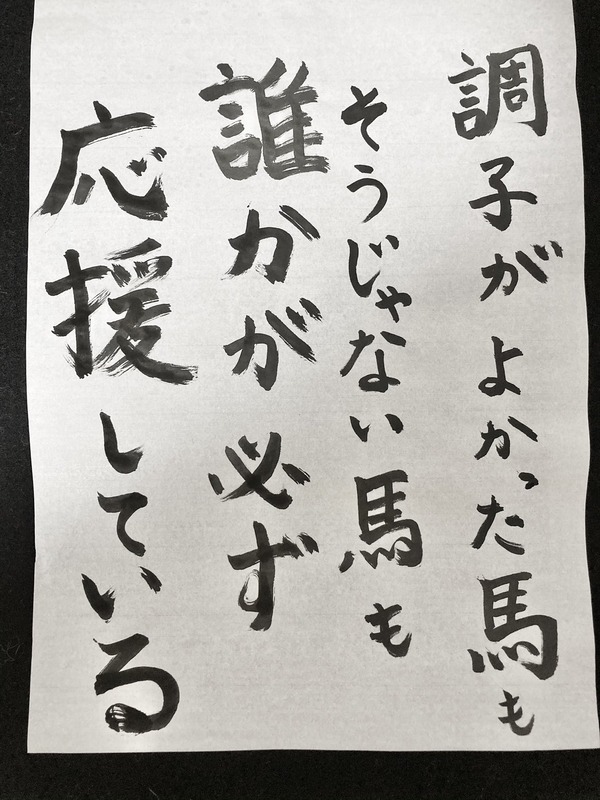 調子がよかった馬も
そうじゃない馬も
誰かが必ず
応援している